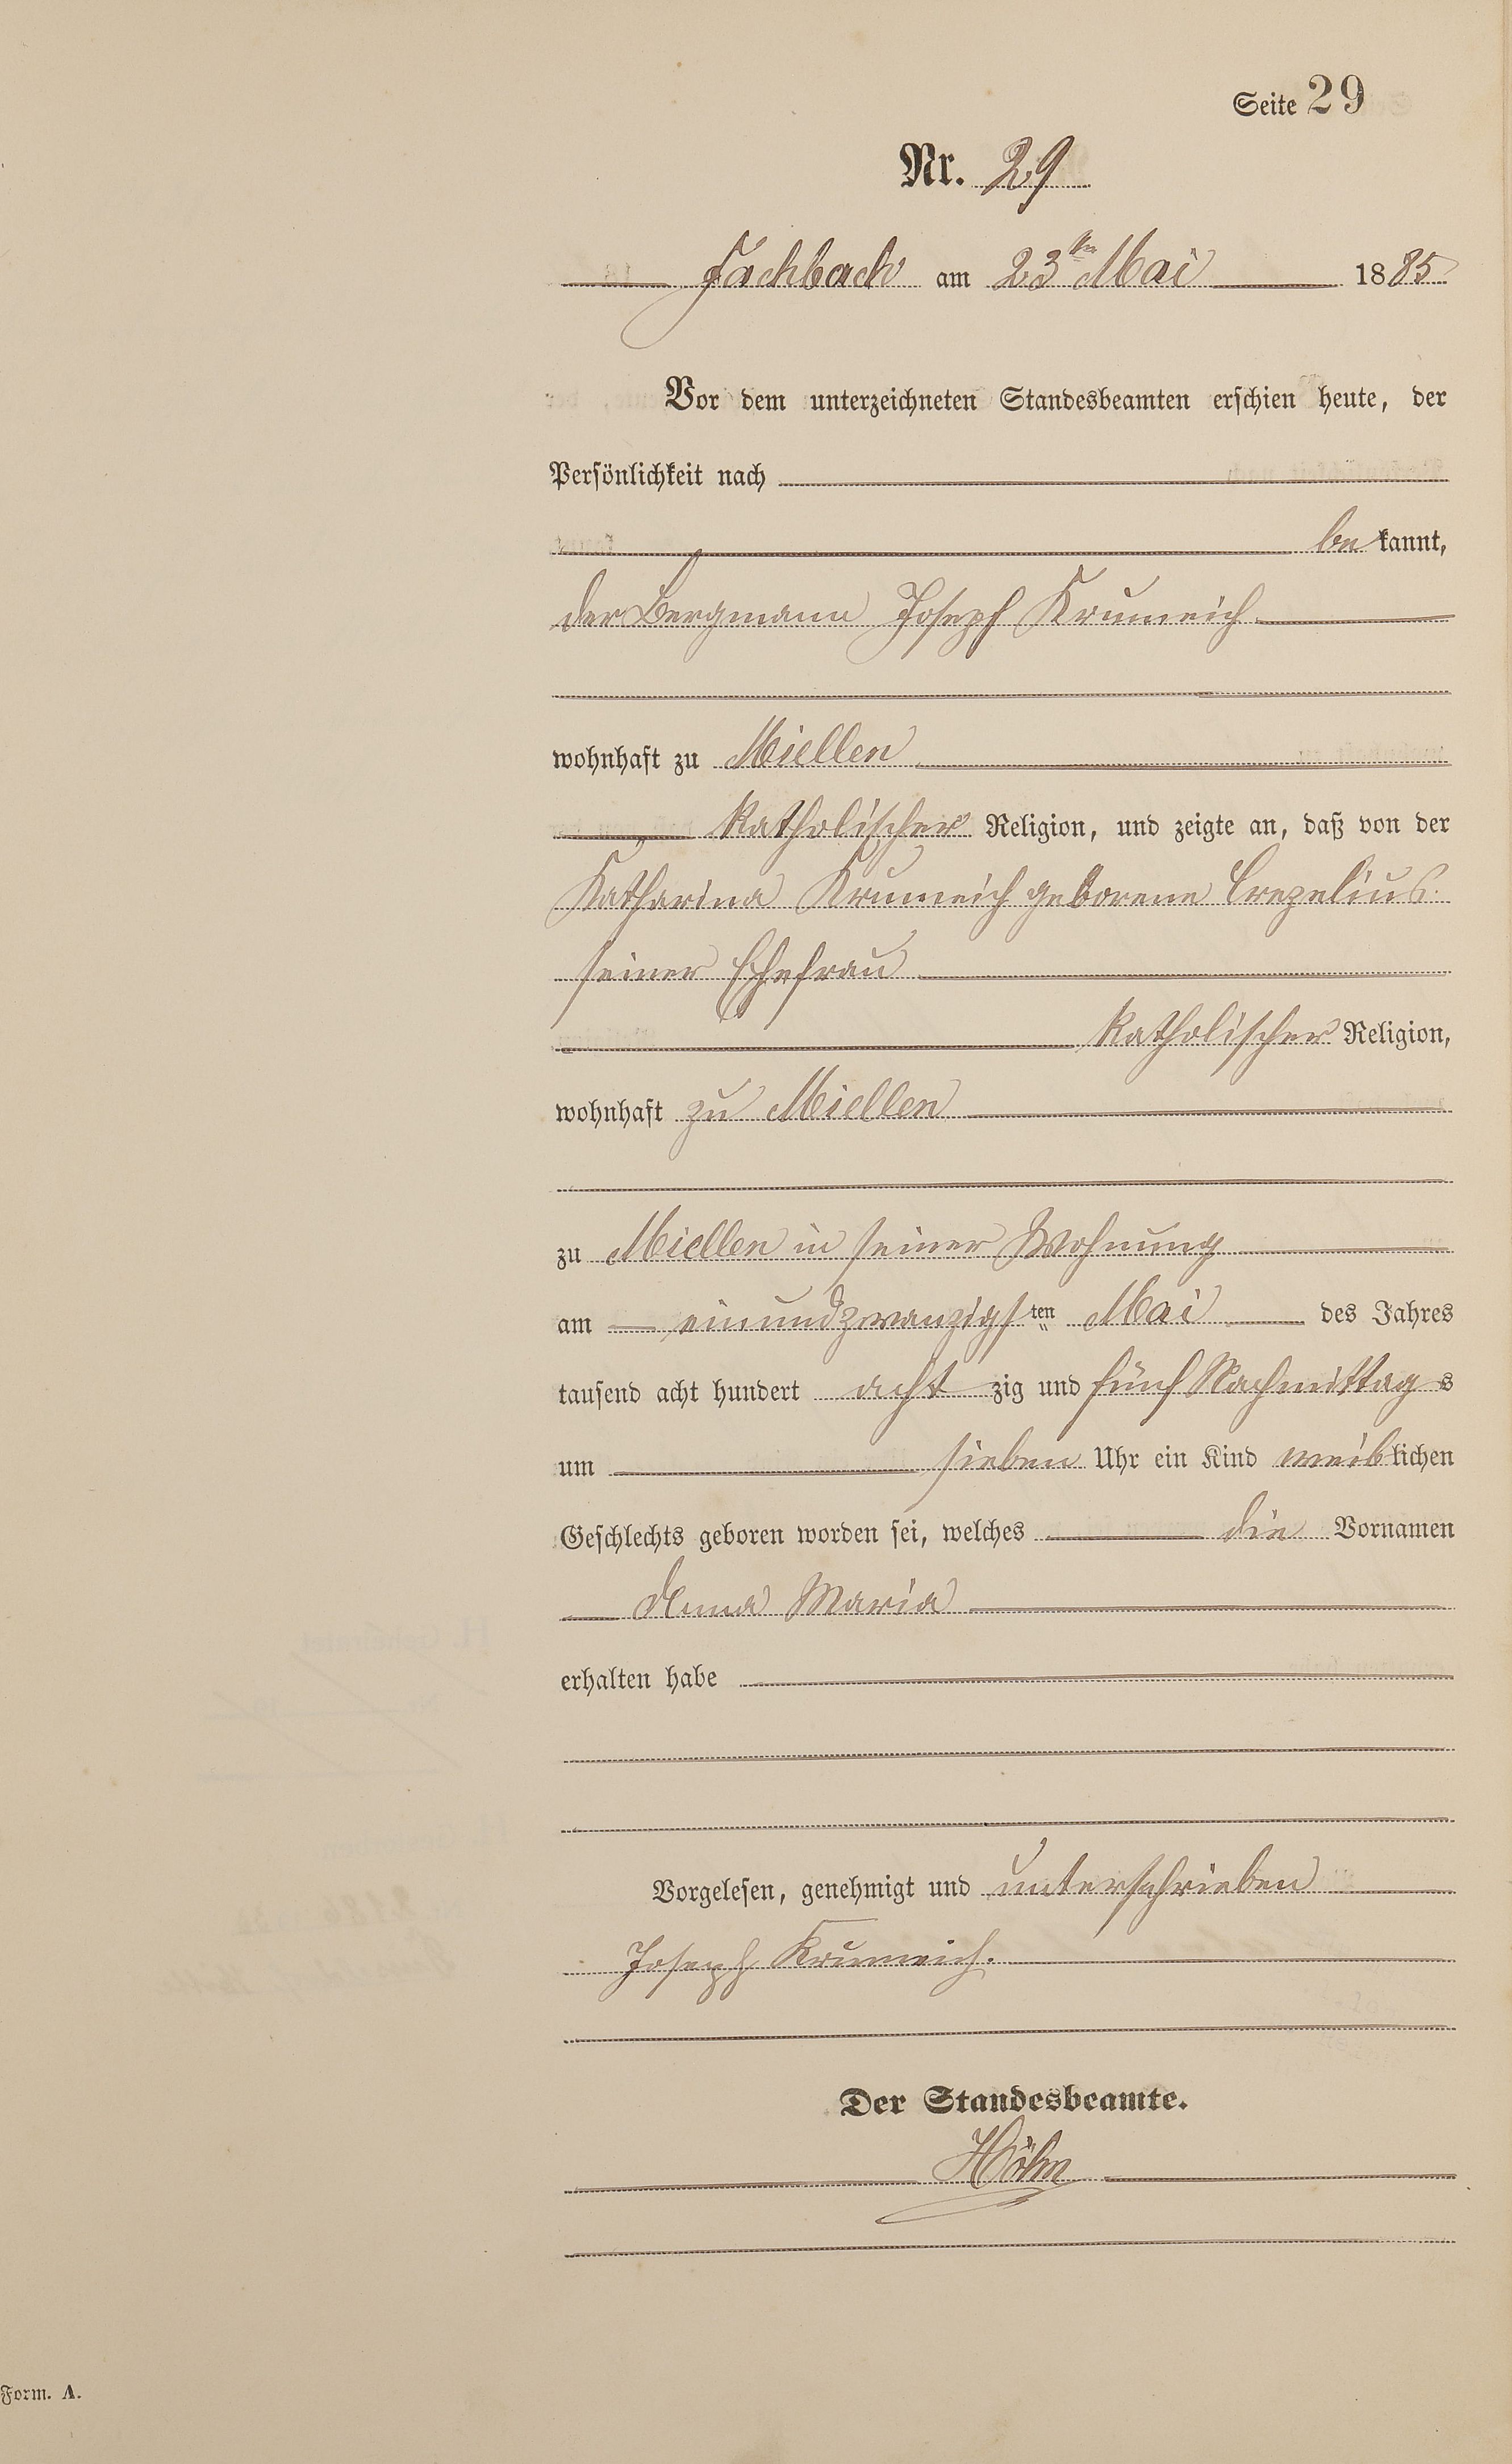 Seite 29
Nr. 29
Fachbach am 23ten Mai 1885
Vor dem unterzeichneten Standesbeamten erschien heute, der
Persönlichkeit nach
bekannt,
der Bergmann Joseph Krumeich
wohnhaft zu Miellen
katholischer Religion, und zeigte an, daß von der
Katharina Krumeich geborene Crezelius
seiner Ehefrau
katholischer Religion,
wohnhaft zu Miellen
zu Miellen in seiner Wohnung
am einundzwanzigsten Mai des Jahres
tausend acht hundert achtzig und fünf Nachmittags
um sieben Uhr ein Kind weiblichen
Geschlechts geboren worden sei, welches die Vornamen
Anna Maria
erhalten habe
Vorgelesen, genehmigt und unterschrieben
Joseph Krumeich.
Der Standesbeamte.
Form. A.